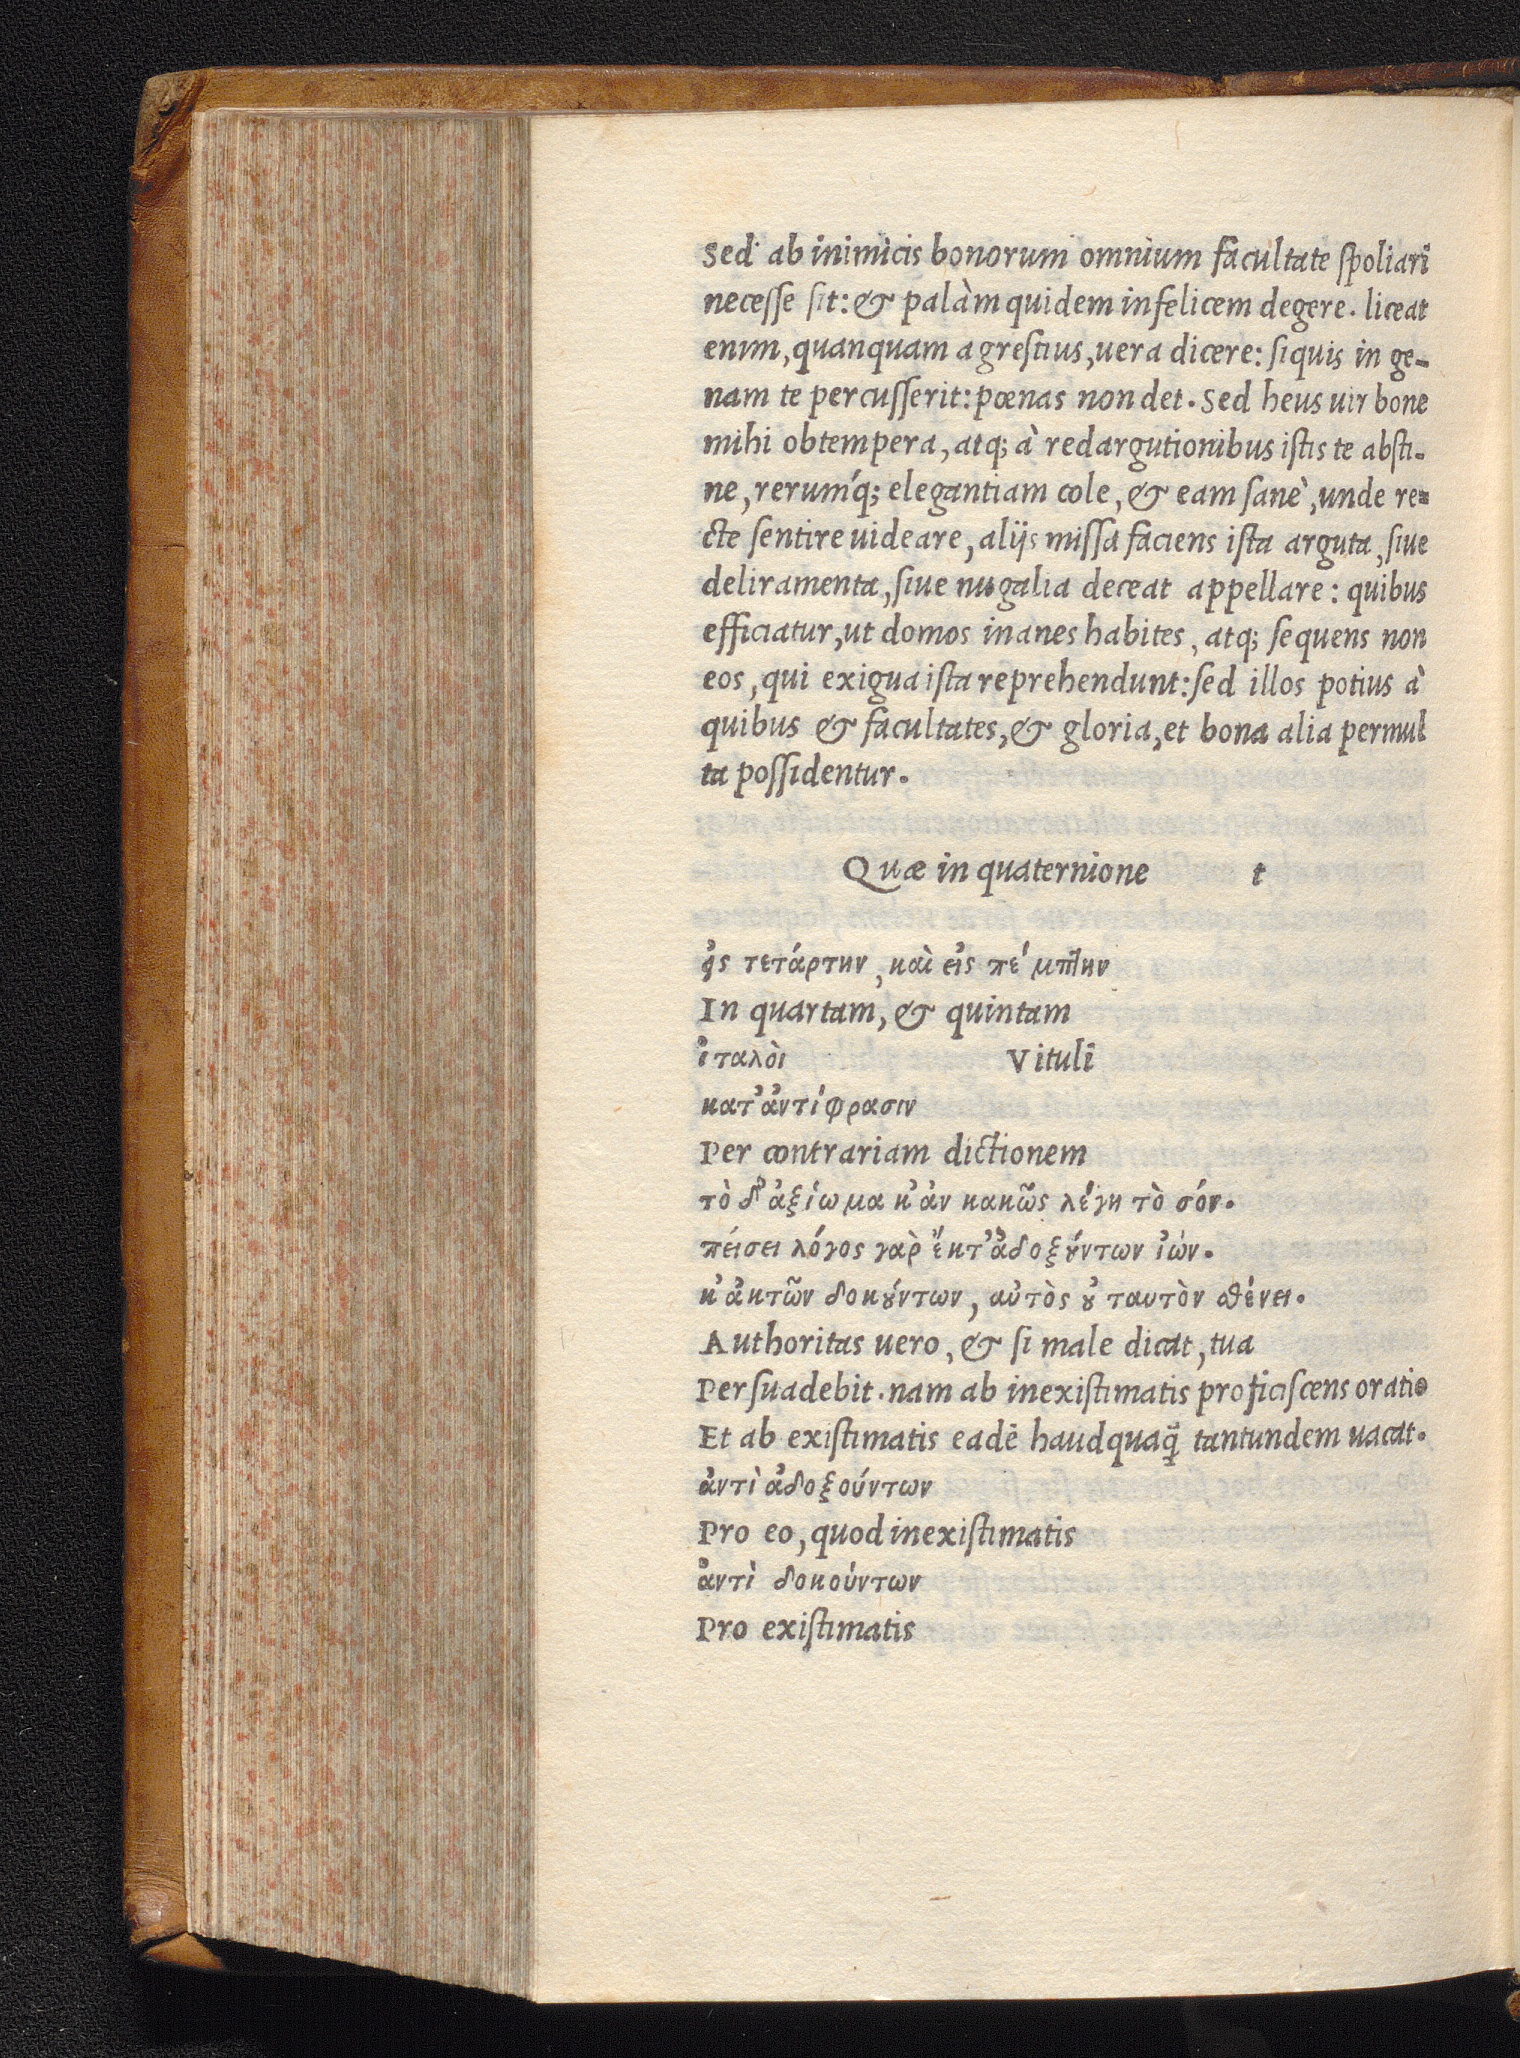 Sed ab inimicis bonorum omnium facultate spoliari
necesse sit: & palàm quidem infelicem degere. liceat
enim, quanquam agrestius, uera dicere: siquis in ge-
nam te percusserit: pœnas non det. Sed heus uir bone
mihi obtempera, atq; à redargutionibus istis te absti-
ne, rerumq́; elegantiam cole, & eam sanè, unde re-
cte sentire uideare, alijs missa faciens ista arguta, siue
deliramenta, siue nugalia deceat appellare: quibus
efficiatur, ut domos inanes habites, atq; sequens non
eos, qui exigua ista reprehendunt: sed illos potius à
quibus & facultates, & gloria, et bona alia permul
ta possidentur.
Quæ in quaternione t
εἰς τετάρτην, καὶ εἰς πέμπτην
In quartam, & quintam
ἰταλὸι Vituli
κατ' ἀντίφρασιν
Per contrariam dictionem
τὸ δ' ἀξίωμα κ' ἀν κακῶς λέγη τὸ σόν.
πέισει λόγος γαρ̀ ἔκτ' ἀδοξούντων ἰών.
κ' ἀκτῶν δοκούντων, αὐτὸς οὐ ταυτὸν σθένει.
Authoritas uero, & si male dicat, tua
Persuadebit. nam ab inexistimatis proficiscens oratio
Et ab existimatis eadē haudquaq̃ tantundem uacat.
ἀντὶ ἀδοξούντων
Pro eo, quod inexistimatis
ἀντὶ δοκούντων
Pro existimatis